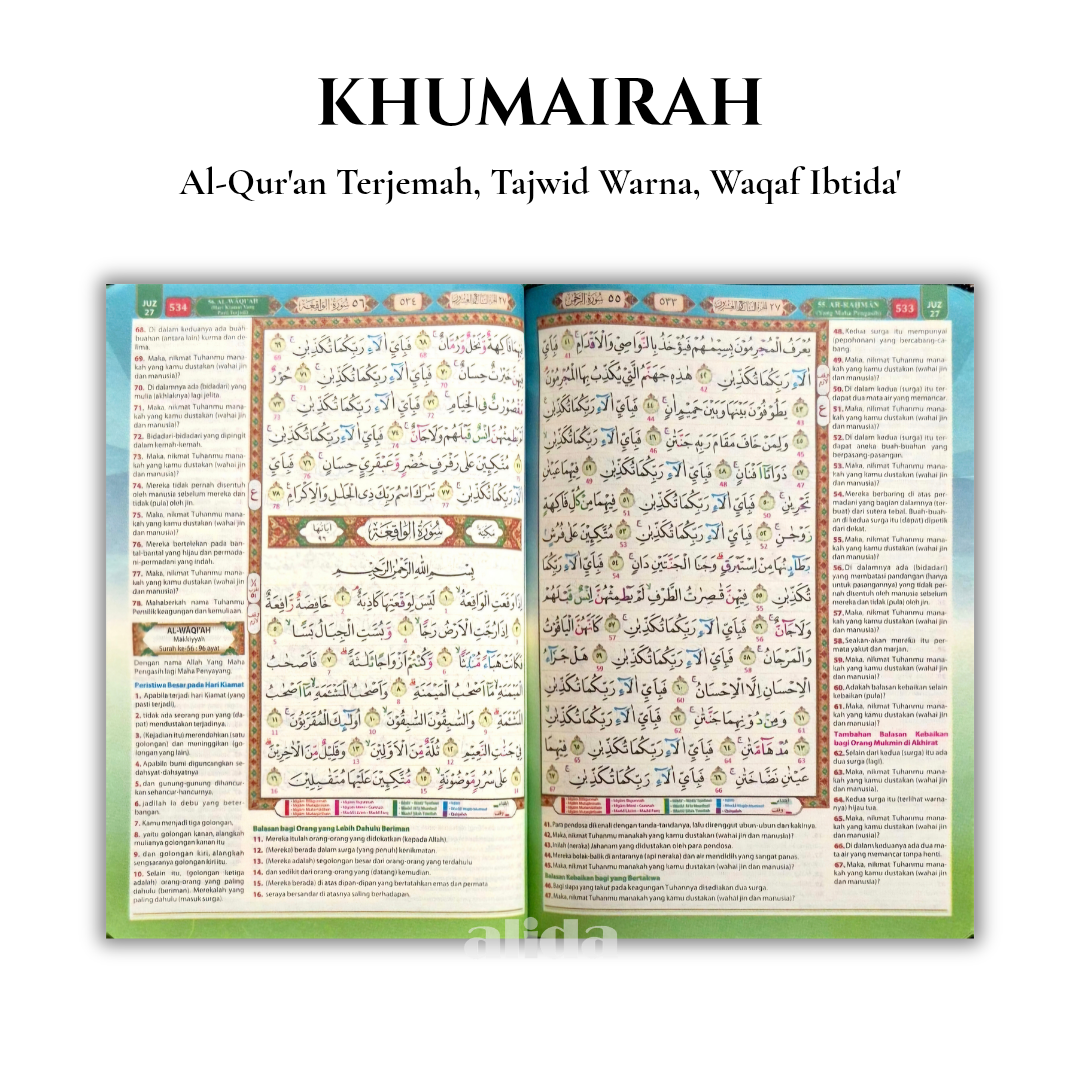 KHUMAIRAH
Al-Qur'an Terjemah, Tajwid Warna, Waqaf Ibtida'
٥٥ سُوْرَةُ الرَّحْمٰن
٥٣٣
55. AR-RAHMĀN
(Yang Maha Pengasih)
533
JUZ
27
يُعْرَفُ الْمُجْرِمُوْنَ بِسِيْمٰهُمْ فَيُؤْخَذُ بِالنَّوَاصِيْ وَالْاَقْدَامِۚ ٤١ فَبِاَيِّ
اٰلَاۤءِ رَبِّكُمَا تُكَذِّبٰنِ ٤٢ هٰذِهٖ جَهَنَّمُ الَّتِيْ يُكَذِّبُ بِهَا الْمُجْرِمُوْنَۘ
٤٣ يَطُوْفُوْنَ بَيْنَهَا وَبَيْنَ حَمِيْمٍ اٰنٍۚ ٤٤ فَبِاَيِّ اٰلَاۤءِ رَبِّكُمَا تُكَذِّبٰنِ
٤٥ وَلِمَنْ خَافَ مَقَامَ رَبِّهٖ جَنَّتٰنِۚ ٤٦ فَبِاَيِّ اٰلَاۤءِ رَبِّكُمَا تُكَذِّبٰنِۙ
٤٧ ذَوَاتَآ اَفْنَانٍۚ ٤٨ فَبِاَيِّ اٰلَاۤءِ رَبِّكُمَا تُكَذِّبٰنِ ٤٩ فِيْهِمَا عَيْنٰنِ
تَجْرِيٰنِۚ ٥٠ فَبِاَيِّ اٰلَاۤءِ رَبِّكُمَا تُكَذِّبٰنِ ٥١ فِيْهِمَا مِنْ كُلِّ فَاكِهَةٍ
زَوْجٰنِۚ ٥٢ فَبِاَيِّ اٰلَاۤءِ رَبِّكُمَا تُكَذِّبٰنِ ٥٣ مُتَّكِـِٕيْنَ عَلٰى فُرُشٍۢ
بَطَاۤىِٕنُهَا مِنْ اِسْتَبْرَقٍۗ وَجَنَا الْجَنَّتَيْنِ دَانٍۚ ٥٤ فَبِاَيِّ اٰلَاۤءِ رَبِّكُمَا
تُكَذِّبٰنِ ٥٥ فِيْهِنَّ قٰصِرٰتُ الطَّرْفِۙ لَمْ يَطْمِثْهُنَّ اِنْسٌ قَبْلَهُمْ
وَلَا جَاۤنٌّۚ ٥٦ فَبِاَيِّ اٰلَاۤءِ رَبِّكُمَا تُكَذِّبٰنِۚ ٥٧ كَاَنَّهُنَّ الْيَاقُوْتُ
وَالْمَرْجَانُۚ ٥٨ فَبِاَيِّ اٰلَاۤءِ رَبِّكُمَا تُكَذِّبٰنِ ٥٩ هَلْ جَزَاۤءُ
الْاِحْسَانِ اِلَّا الْاِحْسَانُۚ ٦٠ فَبِاَيِّ اٰلَاۤءِ رَبِّكُمَا تُكَذِّبٰنِ
٦١ وَمِنْ دُوْنِهِمَا جَنَّتٰنِۚ ٦٢ فَبِاَيِّ اٰلَاۤءِ رَبِّكُمَا تُكَذِّبٰنِۙ
٦٣ مُدْهَاۤمَّتٰنِۚ ٦٤ فَبِاَيِّ اٰلَاۤءِ رَبِّكُمَا تُكَذِّبٰنِۚ ٦٥ فِيْهِمَا
عَيْنٰنِ نَضَّاخَتٰنِۚ ٦٦ فَبِاَيِّ اٰلَاۤءِ رَبِّكُمَا تُكَذِّبٰنِ ٦٧
41. Para pendosa dikenali dengan tanda-tandanya, lalu direnggut ubun-ubun dan kakinya.
42. Maka, nikmat Tuhanmu manakah yang kamu dustakan (wahai jin dan manusia)?
43. Inilah (neraka) Jahanam yang didustakan oleh para pendosa.
44. Mereka bolak-balik di antaranya (api neraka) dan air mendidih yang sangat panas.
45. Maka, nikmat Tuhanmu manakah yang kamu dustakan (wahai jin dan manusia)?
Balasan Kebaikan bagi yang Bertakwa
46. Bagi siapa yang takut pada keagungan Tuhannya disediakan dua surga.
47. Maka, nikmat Tuhanmu manakah yang kamu dustakan (wahai jin dan manusia)?
48. Kedua surga itu mempunyai
(pepohonan) yang bercabang-ca-
bang.
49. Maka, nikmat Tuhanmu mana-
kah yang kamu dustakan (wahai jin
dan manusia)?
50. Di dalam kedua (surga) itu ter-
dapat dua mata air yang memancar.
51. Maka, nikmat Tuhanmu mana-
kah yang kamu dustakan (wahai jin
dan manusia)?
52. Di dalam kedua (surga) itu ter-
dapat aneka buah-buahan yang
berpasang-pasangan.
53. Maka, nikmat Tuhanmu mana-
kah yang kamu dustakan (wahai jin
dan manusia)?
54. Mereka berbaring di atas per-
madani yang bagian dalamnya (ter-
buat) dari sutera tebal. Buah-buah-
an di kedua surga itu (dapat) dipetik
dari dekat.
55. Maka, nikmat Tuhanmu mana-
kah yang kamu dustakan (wahai jin
dan manusia)?
56. Di dalamnya ada (bidadari)
yang membatasi pandangan (hanya
untuk pasangannya) yang tidak per-
nah disentuh oleh manusia sebelum
mereka dan tidak (pula) oleh jin.
57. Maka, nikmat Tuhanmu mana-
kah yang kamu dustakan (wahai jin
dan manusia)?
58. Seakan-akan mereka itu per-
mata yakut dan marjan.
59. Maka, nikmat Tuhanmu mana-
kah yang kamu dustakan (wahai jin
dan manusia)?
60. Adakah balasan kebaikan selain
kebaikan (pula)?
61. Maka, nikmat Tuhanmu mana-
kah yang kamu dustakan (wahai jin
dan manusia)?
Tambahan Balasan Kebaikan
bagi Orang Mukmin di Akhirat
62. Selain dari kedua (surga) itu ada
dua surga (lagi).
63. Maka, nikmat Tuhanmu mana-
kah yang kamu dustakan (wahai jin
dan manusia)?
64. Kedua surga itu (terlihat warna-
nya) hijau tua.
65. Maka, nikmat Tuhanmu mana-
kah yang kamu dustakan (wahai jin
dan manusia)?
66. Di dalam keduanya ada dua ma-
ta air yang memancar tanpa henti.
67. Maka, nikmat Tuhanmu mana-
kah yang kamu dustakan (wahai jin
dan manusia)?
JUZ
27
534
56. AL-WĀQI'AH
٥٦ سُوْرَةُ الْوَاقِعَة
٥٣٤
68. Di dalam keduanya ada buah-
buahan (antara lain) kurma dan de-
lima.
69. Maka, nikmat Tuhanmu mana-
kah yang kamu dustakan (wahai jin
dan manusia)?
70. Di dalamnya ada (bidadari) yang
mulia (akhlaknya) lagi jelita.
71. Maka, nikmat Tuhanmu mana-
kah yang kamu dustakan (wahai jin
dan manusia)?
72. Bidadari-bidadari yang dipingit
dalam kemah-kemah.
73. Maka, nikmat Tuhanmu mana-
kah yang kamu dustakan (wahai jin
dan manusia)?
74. Mereka tidak pernah disentuh
oleh manusia sebelum mereka dan
tidak (pula) oleh jin.
75. Maka, nikmat Tuhanmu mana-
kah yang kamu dustakan (wahai jin
dan manusia)?
76. Mereka bertelekan pada ban-
tal-bantal yang hijau dan permada-
ni-permadani yang indah.
77. Maka, nikmat Tuhanmu mana-
kah yang kamu dustakan (wahai jin
dan manusia)?
78. Mahaberkah nama Tuhanmu
Pemilik keagungan dan kemuliaan.
AL-WĀQI'AH
Makkiyyah
Surah ke-56 : 96 ayat
Dengan nama Allah Yang Maha
Pengasih lagi Maha Penyayang.
Peristiwa Besar pada Hari Kiamat
1. Apabila terjadi hari Kiamat (yang
pasti terjadi),
2. tidak ada seorang pun yang (da-
pat) mendustakan terjadinya.
3. (Kejadian itu) merendahkan (satu
golongan) dan meninggikan (go-
longan yang lain).
4. Apabila bumi diguncangkan se-
dahsyat-dahsyatnya
5. dan gunung-gunung dihancur-
kan sehancur-hancurnya,
6. jadilah ia debu yang beter-
bangan.
7. Kamu menjadi tiga golongan,
8. yaitu golongan kanan, alangkah
mulianya golongan kanan itu
9. dan golongan kiri, alangkah
sengsaranya golongan kiri itu.
10. Selain itu, (golongan ketiga
adalah) orang-orang yang paling
dahulu (beriman). Merekalah yang
paling dahulu (masuk surga).
فِيْهِمَا فَاكِهَةٌ وَّنَخْلٌ وَّرُمَّانٌۚ ٦٨ فَبِاَيِّ اٰلَاۤءِ رَبِّكُمَا تُكَذِّبٰنِۚ ٦٩
فِيْهِنَّ خَيْرٰتٌ حِسَانٌۚ ٧٠ فَبِاَيِّ اٰلَاۤءِ رَبِّكُمَا تُكَذِّبٰنِۚ ٧١ حُوْرٌ
مَّقْصُوْرٰتٌ فِى الْخِيَامِۚ ٧٢ فَبِاَيِّ اٰلَاۤءِ رَبِّكُمَا تُكَذِّبٰنِۚ ٧٣
لَمْ يَطْمِثْهُنَّ اِنْسٌ قَبْلَهُمْ وَلَا جَاۤنٌّۚ ٧٤ فَبِاَيِّ اٰلَاۤءِ رَبِّكُمَا تُكَذِّبٰنِۚ
٧٥ مُتَّكِـِٕيْنَ عَلٰى رَفْرَفٍ خُضْرٍ وَّعَبْقَرِيٍّ حِسَانٍۚ ٧٦ فَبِاَيِّ
اٰلَاۤءِ رَبِّكُمَا تُكَذِّبٰنِ ٧٧ تَبٰرَكَ اسْمُ رَبِّكَ ذِى الْجَلٰلِ وَالْاِكْرَامِ ٧٨
مَكِّيَّة
سُوْرَةُ الْوَاقِعَة
اٰيَاتُهَا ٩٦
بِسْمِ اللّٰهِ الرَّحْمٰنِ الرَّحِيْمِ
اِذَا وَقَعَتِ الْوَاقِعَةُۙ ١ لَيْسَ لِوَقْعَتِهَا كَاذِبَةٌۘ ٢ خَافِضَةٌ رَّافِعَةٌۙ
٣ اِذَا رُجَّتِ الْاَرْضُ رَجًّاۙ ٤ وَّبُسَّتِ الْجِبَالُ بَسًّاۙ ٥
فَكَانَتْ هَبَاۤءً مُّنْۢبَثًّاۙ ٦ وَّكُنْتُمْ اَزْوَاجًا ثَلٰثَةًۗ ٧ فَاَصْحٰبُ
الْمَيْمَنَةِ مَآ اَصْحٰبُ الْمَيْمَنَةِۗ ٨ وَاَصْحٰبُ الْمَشْـَٔمَةِ مَآ اَصْحٰبُ
الْمَشْـَٔمَةِۗ ٩ وَالسّٰبِقُوْنَ السّٰبِقُوْنَۙ ١٠ اُولٰۤىِٕكَ الْمُقَرَّبُوْنَۚ ١١
فِيْ جَنّٰتِ النَّعِيْمِ ١٢ ثُلَّةٌ مِّنَ الْاَوَّلِيْنَۙ ١٣ وَقَلِيْلٌ مِّنَ الْاٰخِرِيْنَۗ
١٤ عَلٰى سُرُرٍ مَّوْضُوْنَةٍۙ ١٥ مُّتَّكِـِٕيْنَ عَلَيْهَا مُتَقٰبِلِيْنَ ١٦
Balasan bagi Orang yang Lebih Dahulu Beriman
11. Mereka itulah orang-orang yang didekatkan (kepada Allah).
12. (Mereka) berada dalam surga (yang penuh) kenikmatan.
13. (Mereka adalah) segolongan besar dari orang-orang yang terdahulu
14. dan sedikit dari orang-orang yang (datang) kemudian.
15. (Mereka berada) di atas dipan-dipan yang bertatahkan emas dan permata
16. seraya bersandar di atasnya saling berhadapan.
alida